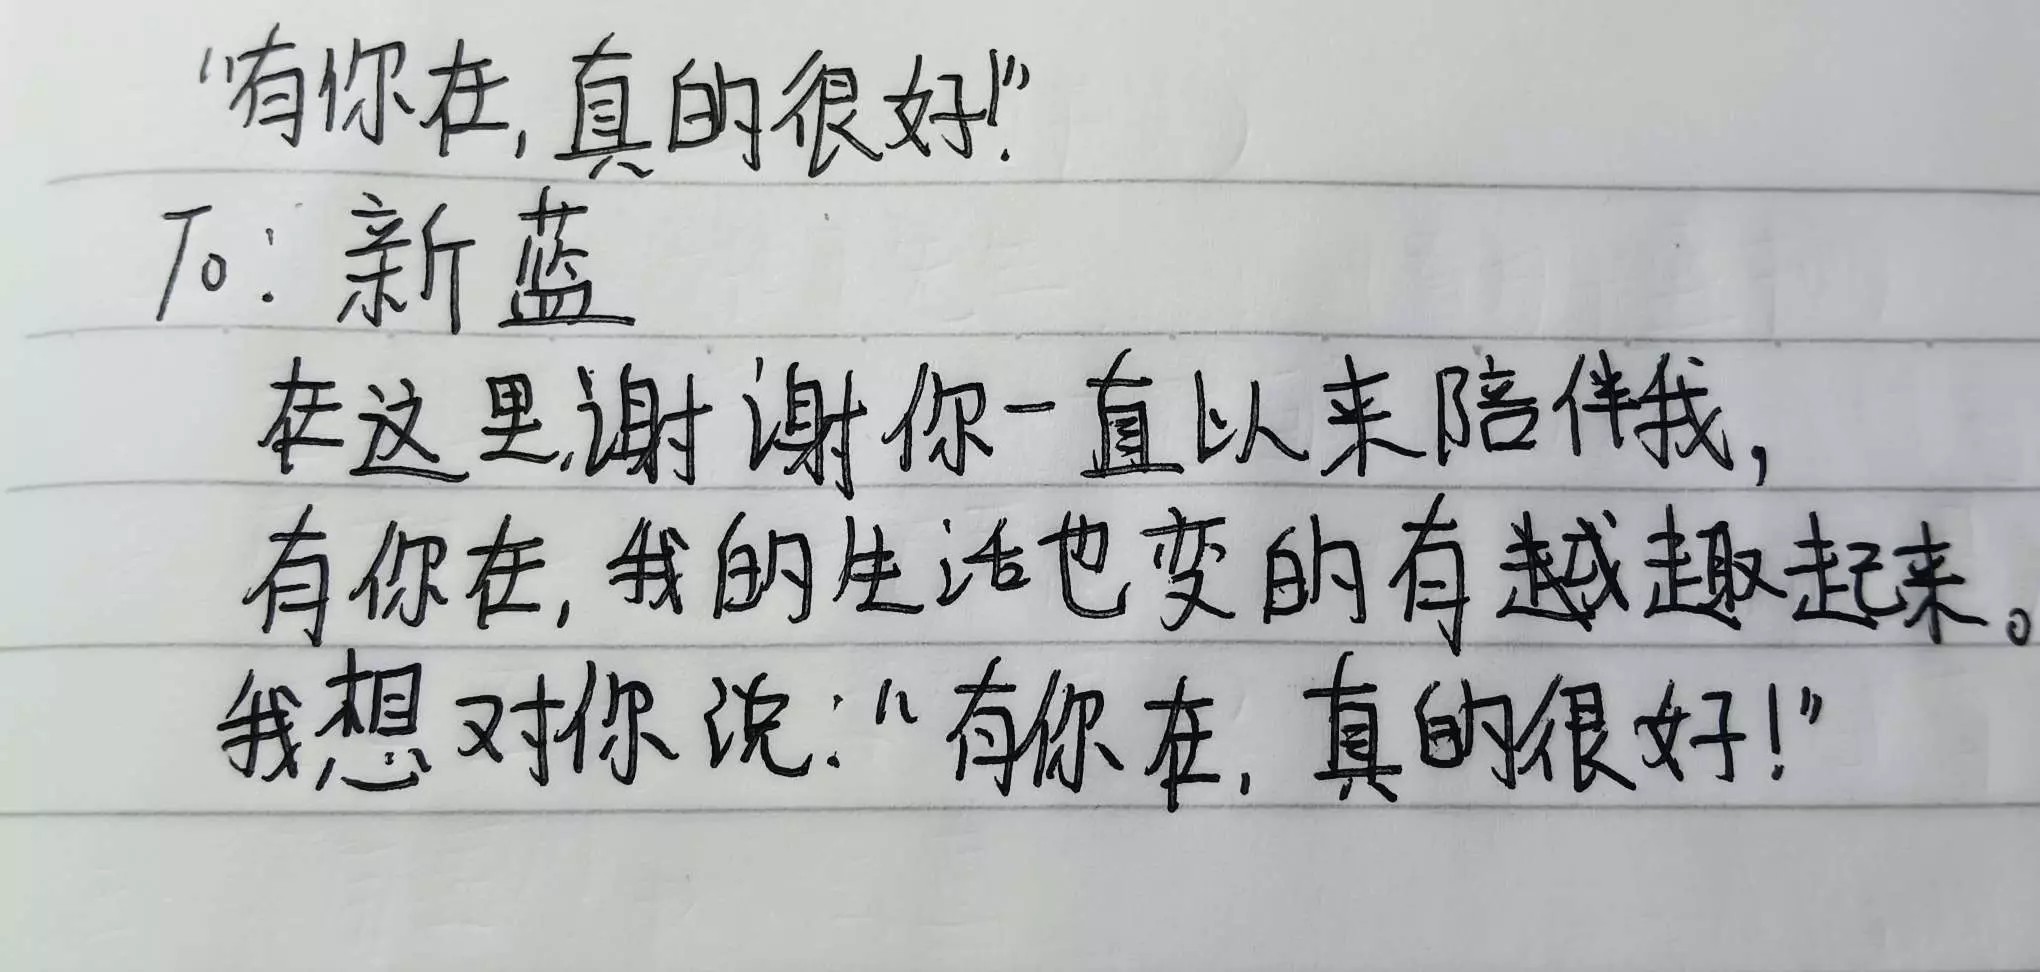 “有你在,真的很好!”
To: 新蓝
在这里,谢谢你一直以来陪伴我,
有你在,我的生活也变的有越趣起来。
我想对你说:“有你在,真的很好!”